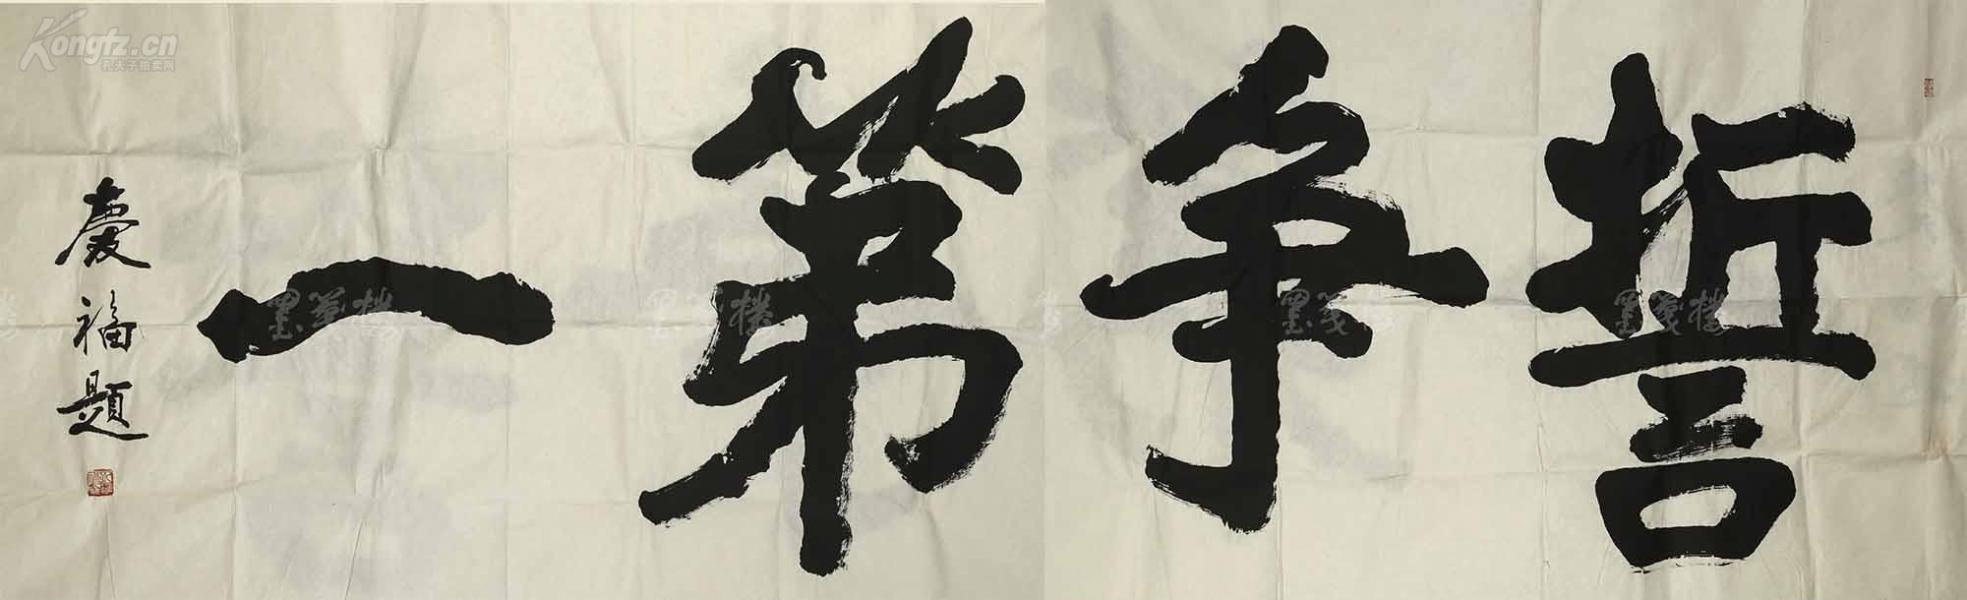 誓争第一
慶福題
Kongfz.cn
孔夫子拍卖网
墨笺楼
墨笺楼
墨笺楼
墨笺楼